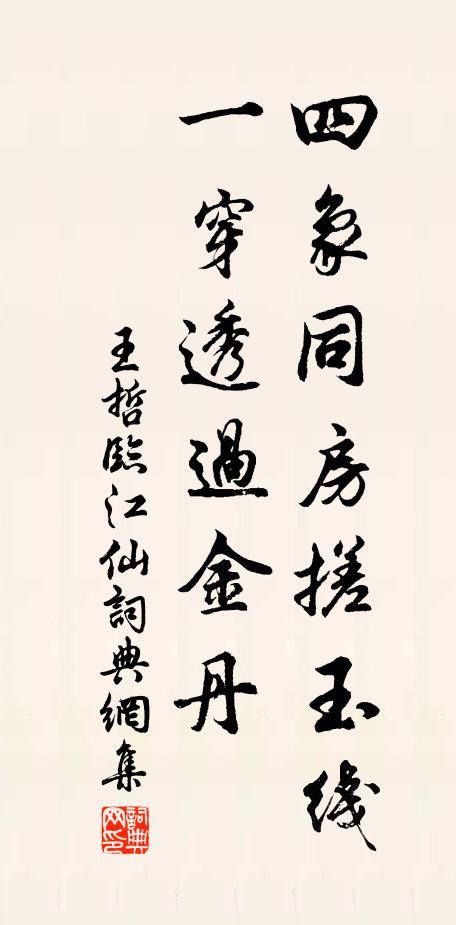 四象同房搓玉线
一穿透過金丹
王哲臨江仙詞典網集
詞典网印